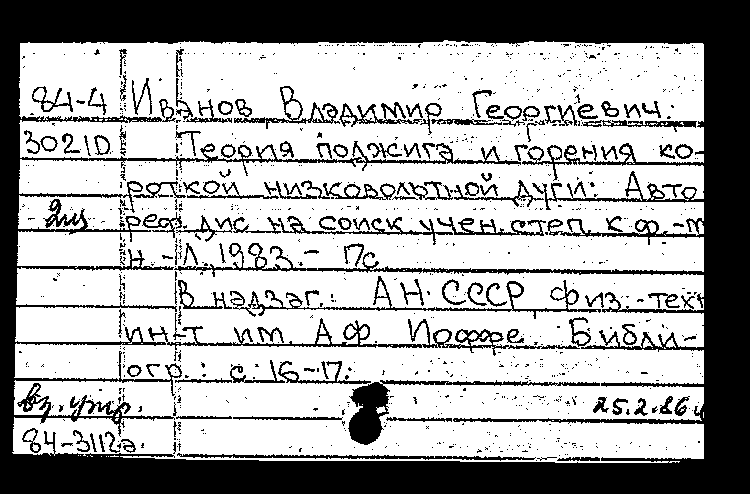 84-4 Иванов Владимир Георгиевич.
3021D Теория поджига и горения ко-
роткой низковольтной дуги: Авто
2из реф. дис на соиск учен. степ. к. ф.-м
н. - Л., 1983. - 17с
В надзаг.: АН СССР, Физ.-техн
ин-т им. А.Ф. Иоффе. Библи-
огр.: с. 16-17.
вз. утр. 25.2.86
84-3112а.